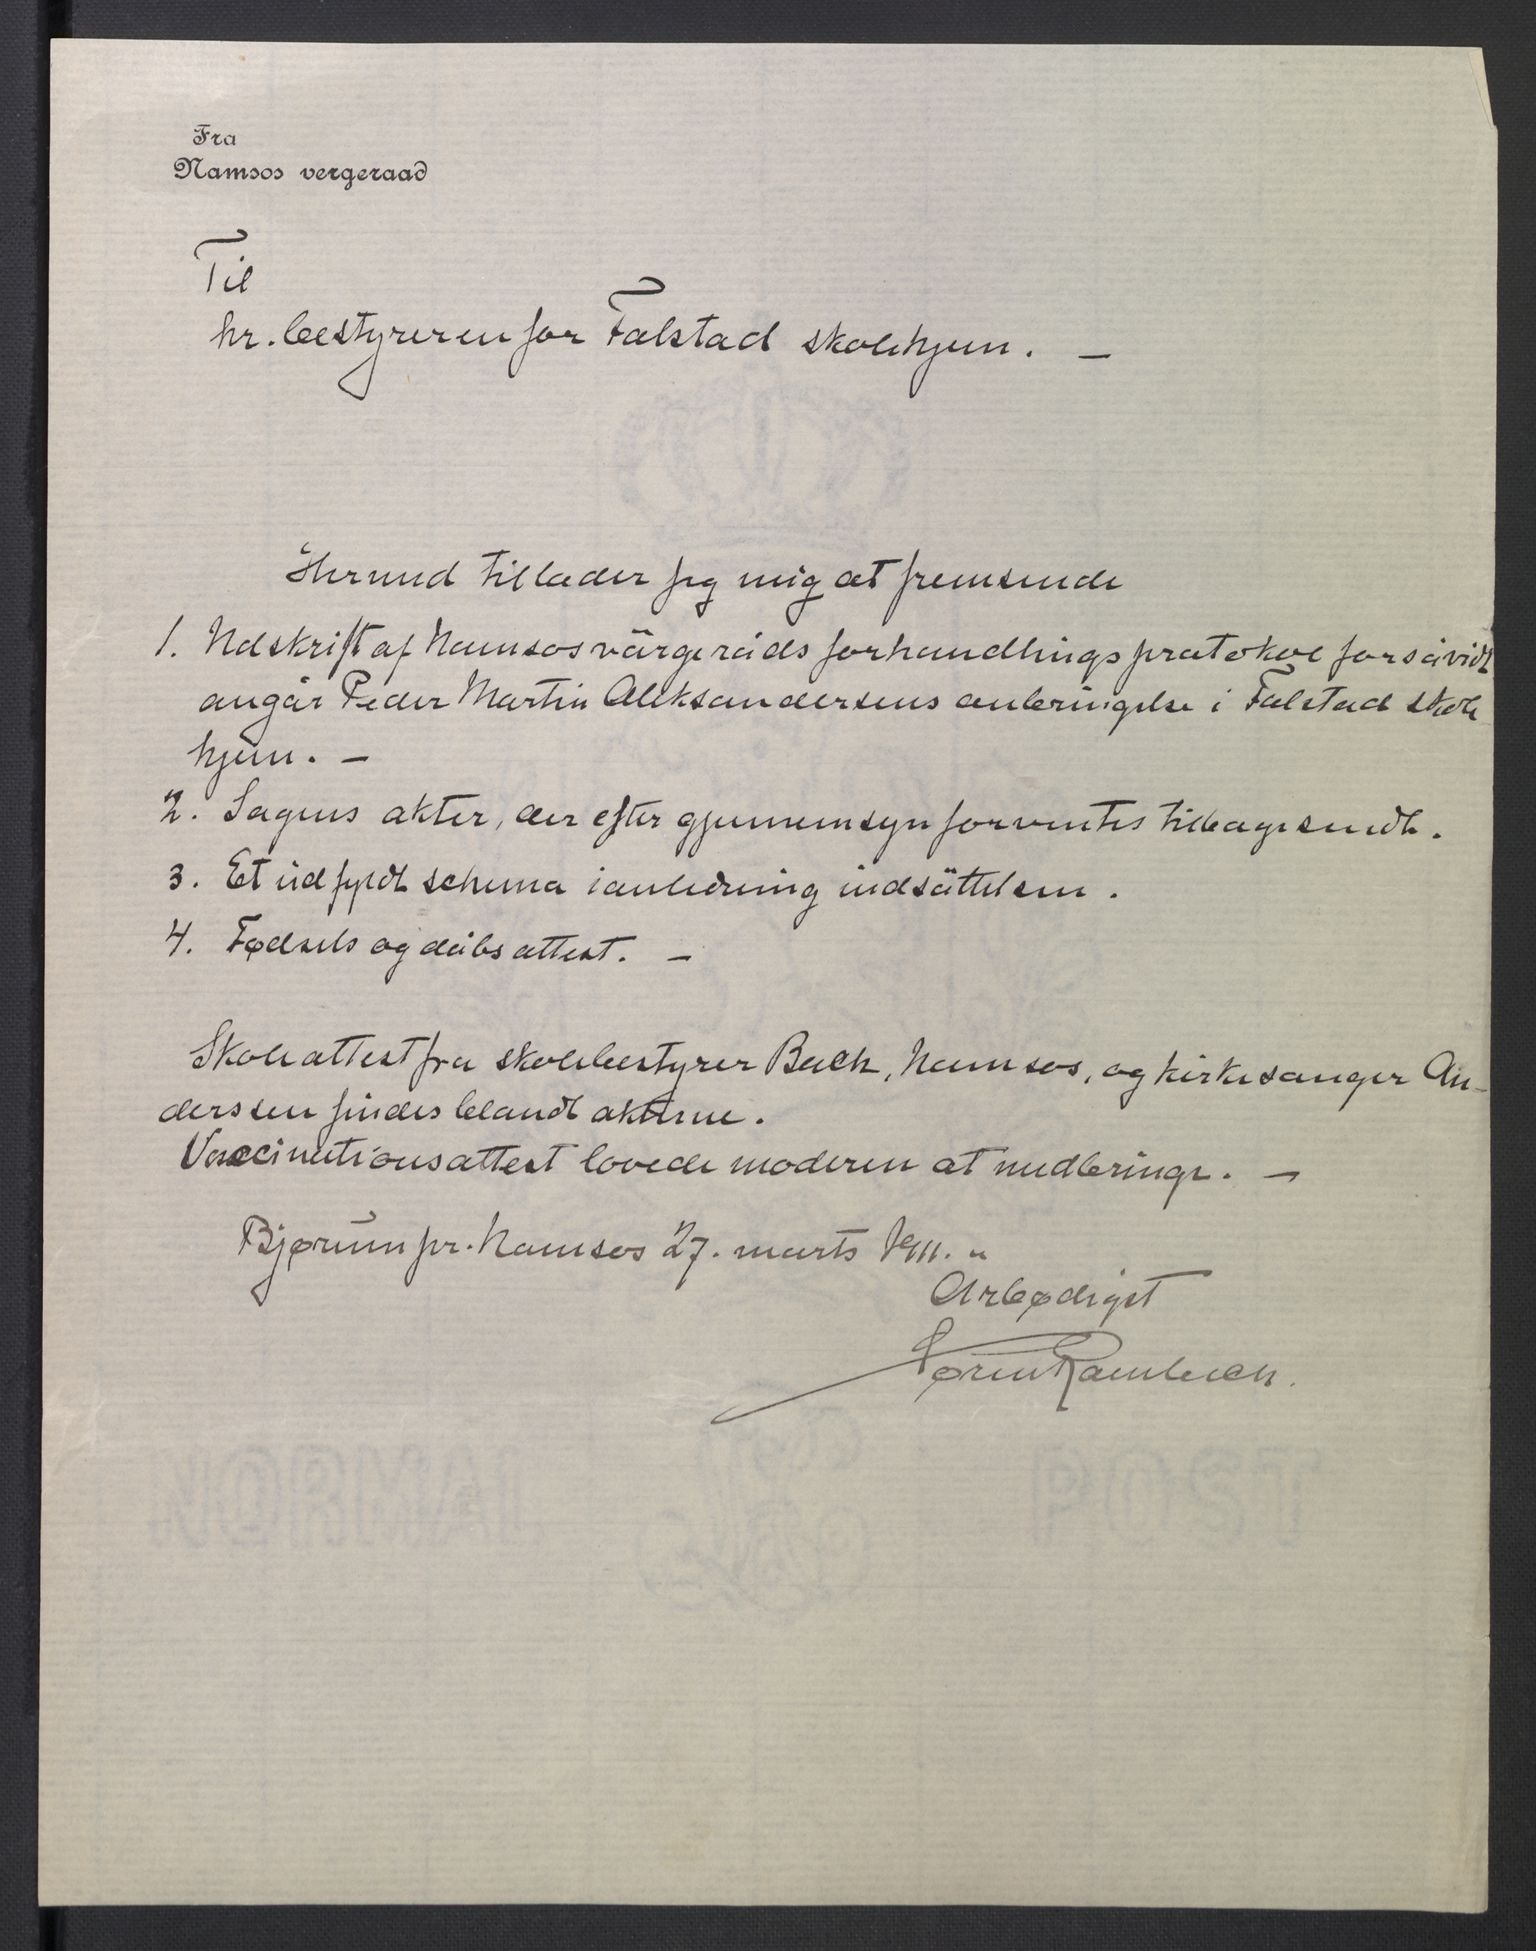 Fra
Namsos vergeraad
Til
hr. bestyreren for Falstad skolehjem. —
Hermed tillader jeg mig at fremsende
1. Udskrift af Namsos värgeråds forhandlingsprotokol forsåvidt
angår Peder Martin Aleksandersens anbringelse i Falstad skole
hjem. —
2. Sagens akter, der efter gjennemsyn forventes tilbagesendt.
3. Et udfyldt schema i anledning indsättelsen.
4. Fødsels og dåbsattest. —
Skoleattest fra skolebestyrer Bach, Namsos, og kirkesanger An-
derssen findes blandt akterne.
Vaccinationsattest lovede moderen at medbringe. —
Bjørum pr. Namsos 27. marts 1911.
Ærbødigst
Søren Rambech.
NORMAL POST